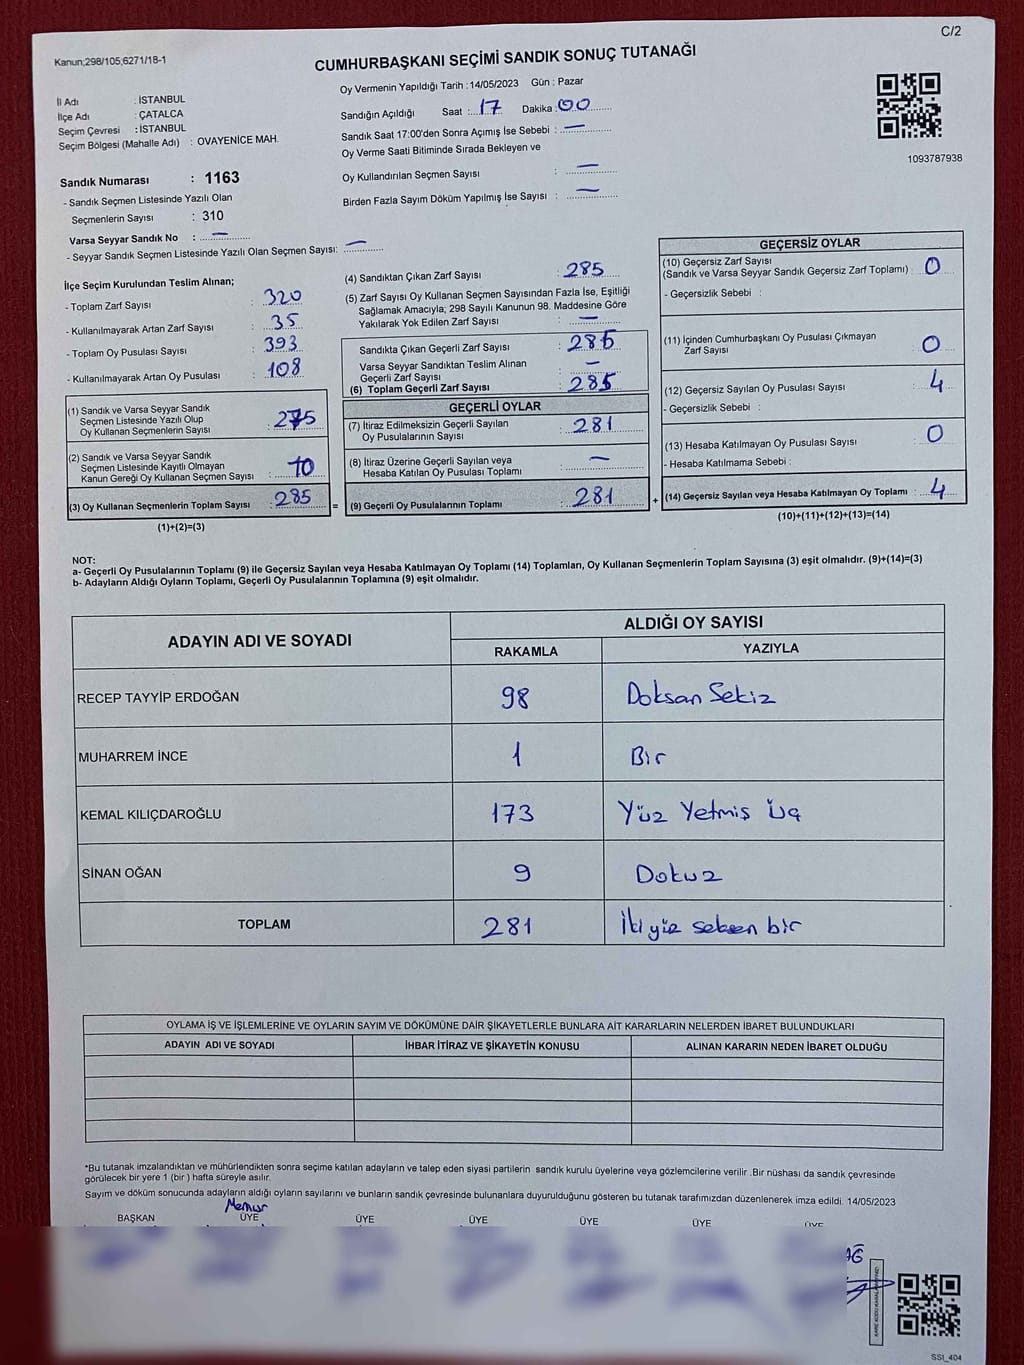 C/2
Kanun;298/105;6271/18-1
CUMHURBAŞKANI SEÇİMİ SANDIK SONUÇ TUTANAĞI
Oy Vermenin Yapıldığı Tarih :14/05/2023 Gün : Pazar
İl Adı : İSTANBUL
İlçe Adı : ÇATALCA
Seçim Çevresi : İSTANBUL
Seçim Bölgesi (Mahalle Adı) : OVAYENİCE MAH.
Sandığın Açıldığı Saat : 17 Dakika : 00
Sandık Saat 17:00'den Sonra Açımış İse Sebebi : —
Oy Verme Saati Bitiminde Sırada Bekleyen ve
Oy Kullandırılan Seçmen Sayısı : —
Birden Fazla Sayım Döküm Yapılmış İse Sayısı : —
1093787938
Sandık Numarası : 1163
- Sandık Seçmen Listesinde Yazılı Olan
Seçmenlerin Sayısı : 310
Varsa Seyyar Sandık No : —
- Seyyar Sandık Seçmen Listesinde Yazılı Olan Seçmen Sayısı: —
İlçe Seçim Kurulundan Teslim Alınan;
- Toplam Zarf Sayısı : 320
- Kullanılmayarak Artan Zarf Sayısı : 35
- Toplam Oy Pusulası Sayısı : 393
- Kullanılmayarak Artan Oy Pusulası : 108
(1) Sandık ve Varsa Seyyar Sandık
Seçmen Listesinde Yazılı Olup
Oy Kullanan Seçmenlerin Sayısı : 275
(2) Sandık ve Varsa Seyyar Sandık
Seçmen Listesinde Kayıtlı Olmayan
Kanun Gereği Oy Kullanan Seçmen Sayısı : 10
(3) Oy Kullanan Seçmenlerin Toplam Sayısı : 285
(1)+(2)=(3)
(4) Sandıktan Çıkan Zarf Sayısı : 285
(5) Zarf Sayısı Oy Kullanan Seçmen Sayısından Fazla İse, Eşitliği
Sağlamak Amacıyla; 298 Sayılı Kanunun 98. Maddesine Göre
Yakılarak Yok Edilen Zarf Sayısı : —
Sandıkta Çıkan Geçerli Zarf Sayısı : 285
Varsa Seyyar Sandıktan Teslim Alınan
Geçerli Zarf Sayısı : —
(6) Toplam Geçerli Zarf Sayısı : 285
GEÇERLİ OYLAR
(7) İtiraz Edilmeksizin Geçerli Sayılan
Oy Pusulalarının Sayısı : 281
(8) İtiraz Üzerine Geçerli Sayılan veya
Hesaba Katılan Oy Pusulası Toplamı : —
= (9) Geçerli Oy Pusulalarının Toplamı : 281
GEÇERSİZ OYLAR
(10) Geçersiz Zarf Sayısı
(Sandık ve Varsa Seyyar Sandık Geçersiz Zarf Toplamı) : 0
- Geçersizlik Sebebi :
(11) İçinden Cumhurbaşkanı Oy Pusulası Çıkmayan
Zarf Sayısı : 0
(12) Geçersiz Sayılan Oy Pusulası Sayısı : 4
- Geçersizlik Sebebi :
(13) Hesaba Katılmayan Oy Pusulası Sayısı : 0
- Hesaba Katılmama Sebebi :
+ (14) Geçersiz Sayılan veya Hesaba Katılmayan Oy Toplamı : 4
(10)+(11)+(12)+(13)=(14)
NOT:
a- Geçerli Oy Pusulalarının Toplamı (9) ile Geçersiz Sayılan veya Hesaba Katılmayan Oy Toplamı (14) Toplamları, Oy Kullanan Seçmenlerin Toplam Sayısına (3) eşit olmalıdır. (9)+(14)=(3)
b- Adayların Aldığı Oyların Toplamı, Geçerli Oy Pusulalarının Toplamına (9) eşit olmalıdır.
ADAYIN ADI VE SOYADI ALDIĞI OY SAYISI
RAKAMLA YAZIYLA
RECEP TAYYİP ERDOĞAN 98 Doksan Sekiz
MUHARREM İNCE 1 Bir
KEMAL KILIÇDAROĞLU 173 Yüz Yetmiş Üç
SİNAN OĞAN 9 Dokuz
TOPLAM 281 İkiyüz seksen bir
OYLAMA İŞ VE İŞLEMLERİNE VE OYLARIN SAYIM VE DÖKÜMÜNE DAİR ŞİKAYETLERLE BUNLARA AİT KARARLARIN NELERDEN İBARET BULUNDUKLARI
ADAYIN ADI VE SOYADI İHBAR İTİRAZ VE ŞİKAYETİN KONUSU ALINAN KARARIN NEDEN İBARET OLDUĞU
*Bu tutanak imzalandıktan ve mühürlendikten sonra seçime katılan adayların ve talep eden siyasi partilerin sandık kurulu üyelerine veya gözlemcilerine verilir .Bir nüshası da sandık çevresinde
görülecek bir yere 1 (bir ) hafta süreyle asılır.
Sayım ve döküm sonucunda adayların aldığı oyların sayılarını ve bunların sandık çevresinde bulunanlara duyurulduğunu gösteren bu tutanak tarafımızdan düzenlenerek imza edildi. 14/05/2023
Memur
BAŞKAN ÜYE ÜYE ÜYE ÜYE ÜYE ÜYE
SSI_404